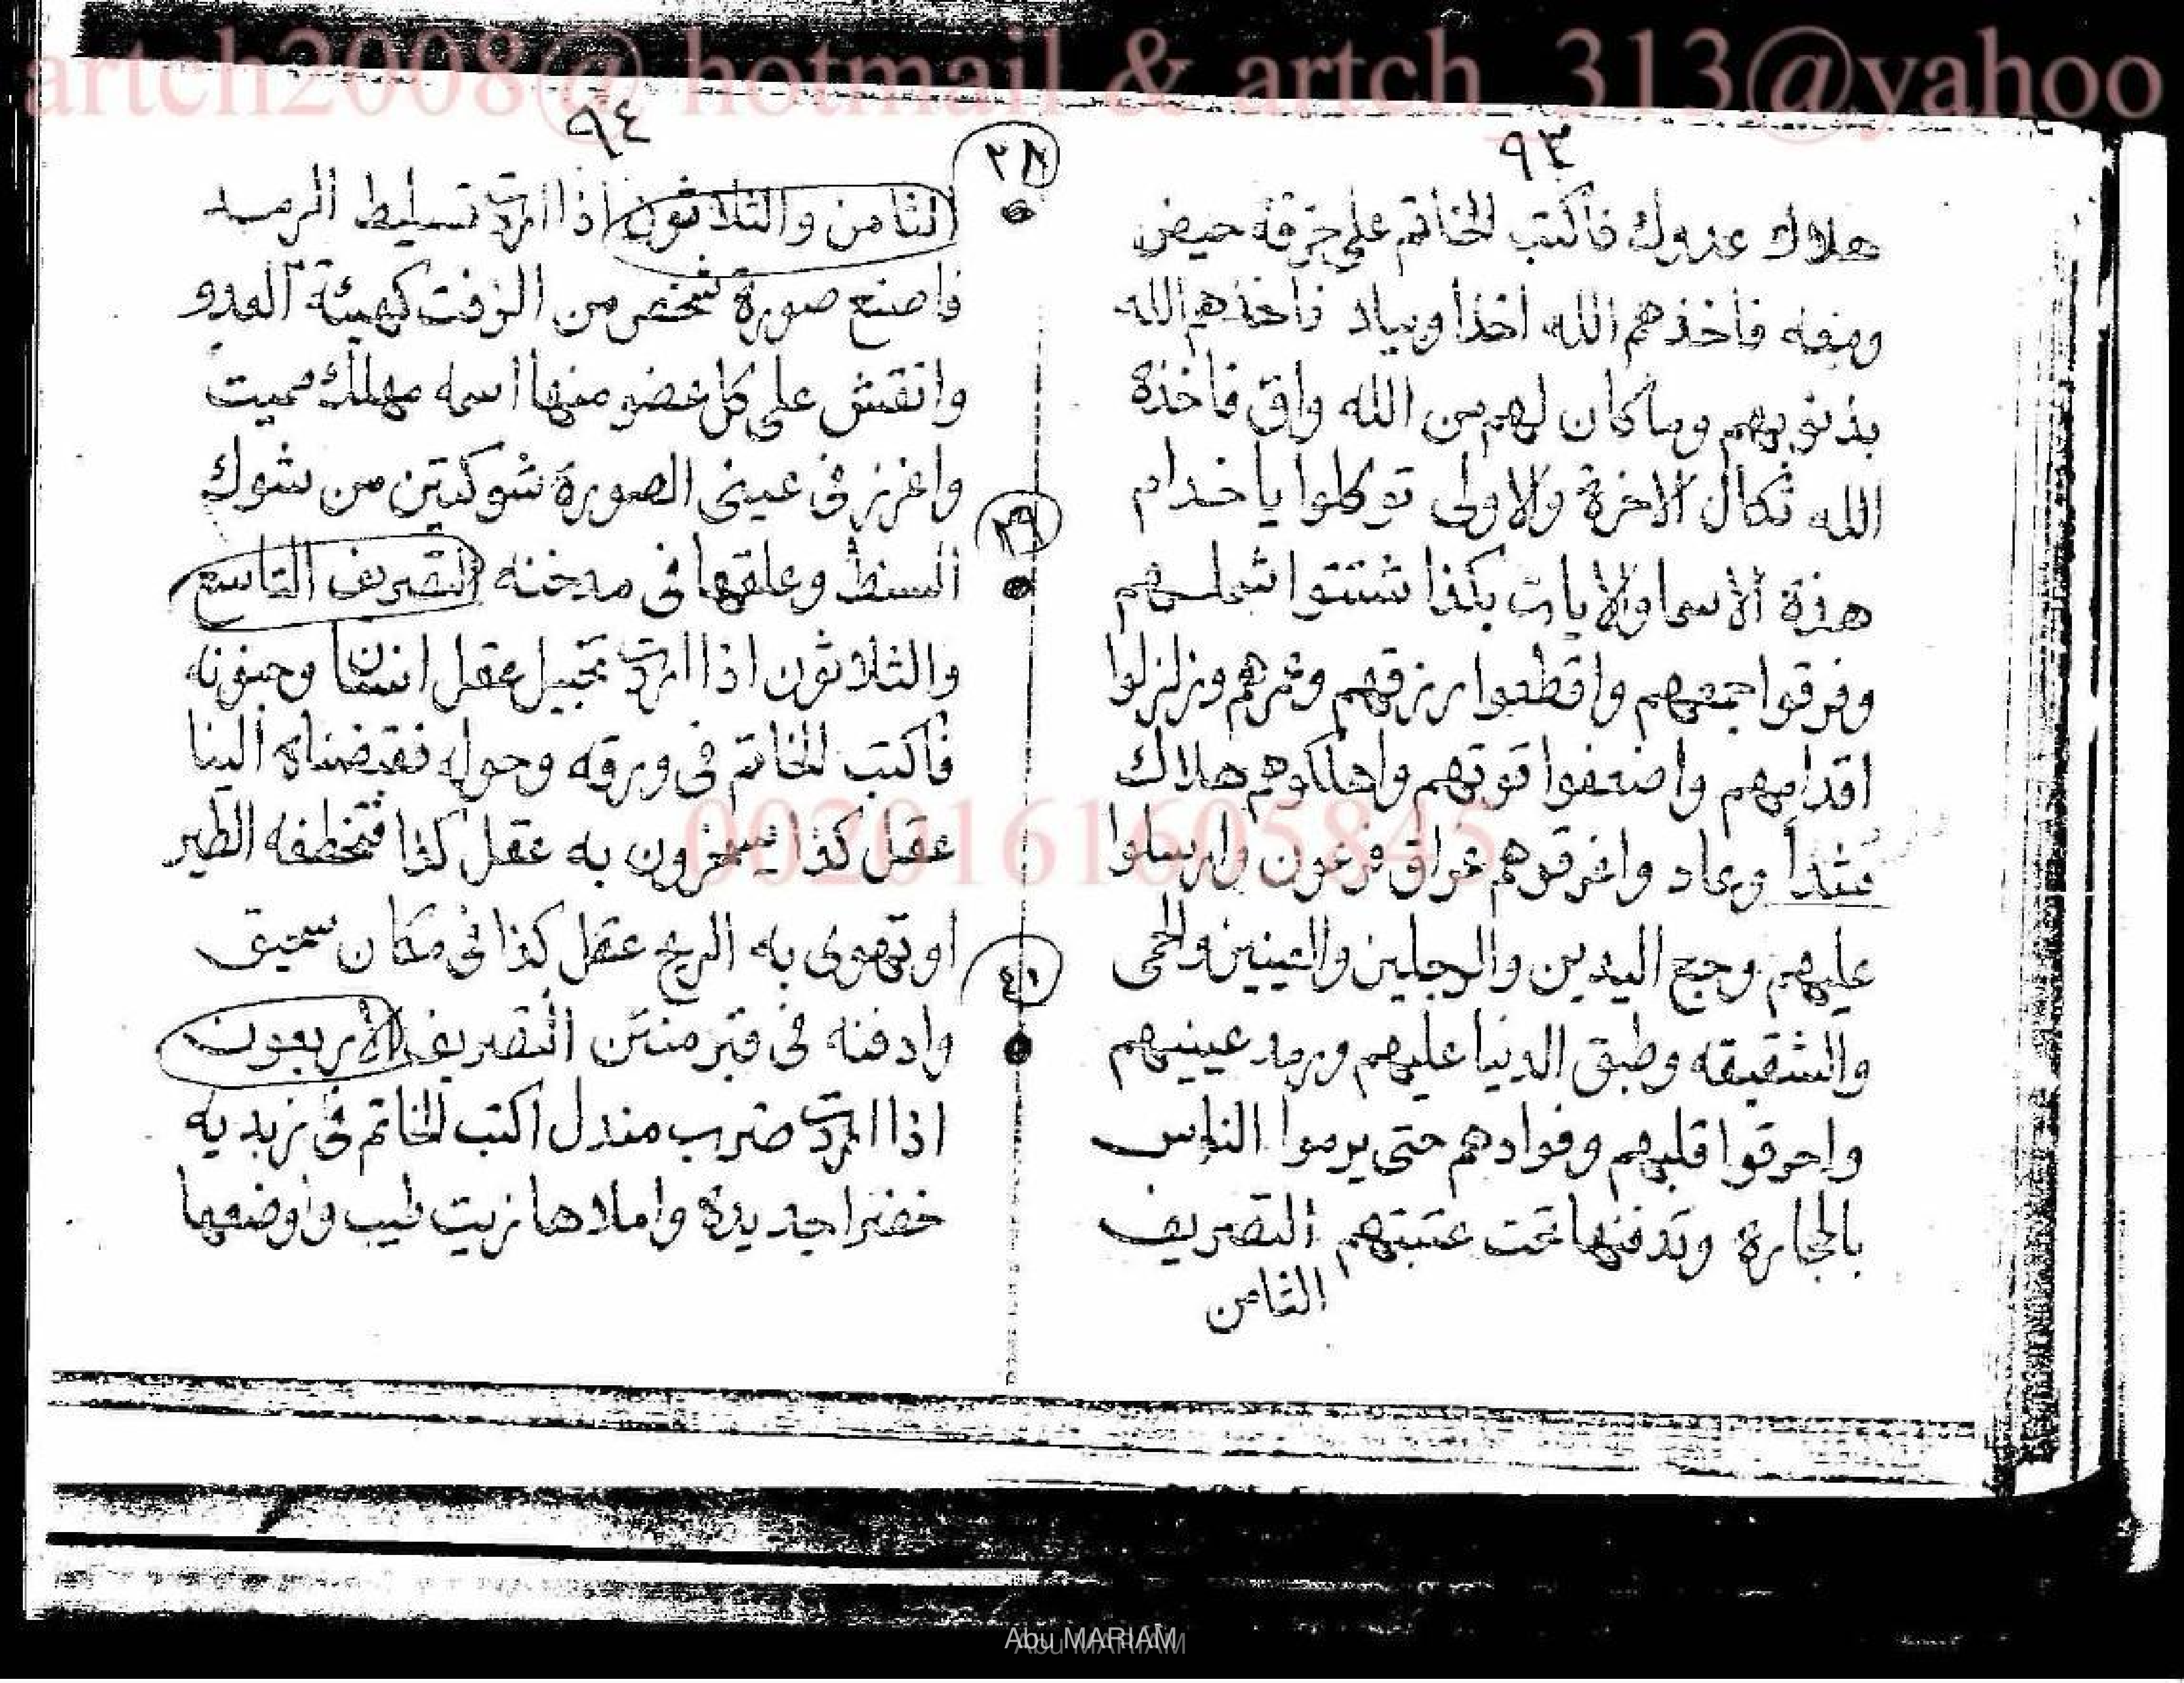 artch2008@ hotmail & artch_313@yahoo
٩٣
هلاك عدوك فاكتب الخاتم على خرقة حيض
ومعه فاخذهم الله اخذا وبياد فاخذهم الله
بذنوبهم وما كان لهم من الله واق فاخذه
الله نكال الاخرة والاولى توكلوا يا خدام
هذه الاسما والايات بكذا شتتوا شملهم
وفرقوا جمعهم واقطعوا رزقهم وزلزلوا
اقدامهم واضعفوا قوتهم واهلكوهم هلاك
وعاد واغرقوهم غراق فرعون وارسلوا
عليهم وجع اليدين والرجلين والعينين والحمى
والشقيقه وطبق الدنيا عليهم ورمد عينيهم
واحرقوا قلبهم وفوادهم حتى يرموا الناس
بالحجارة وتدفنها تحت عتبتهم التصريف
الثامن
٩٤
٣٨
الثامن والثلاثون اذا اردت تسليط الرمد
فاصنع صورة شخص من الزفت كهيئة العدو
وانقش على كل عضو منها اسمه مهلك مميت
واغرز فى عينى الصورة شوكتين من شوك
٣٩
السنط وعلقها فى مدخنه التصريف التاسع
والثلاثون اذا اردت تخبيل عقل انسان وجنونه
فاكتب الخاتم فى ورقه وحوله فقبضناه الينا
عقل كذا يسخرون به عقل كذا فتخطفه الطير
او تهوى به الريح عقل كذا فى مكان سحيق
٤٠
وادفنه فى قبر منتن التصريف الأربعون
اذا اردت ضرب مندل اكتب الخاتم فى زبديه
خضرا جديدة واملاها زيت طيب واوضعها
0020161605845
Abu MARIAM